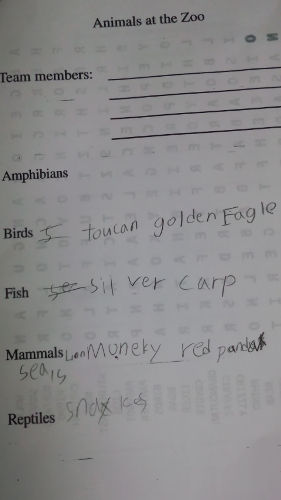 Animals at the Zoo
Team members:
Amphibians
Birds toucan golden Eagle
Fish silver carp
Mammals Lion Moneky red panda
seals
Reptiles snakes